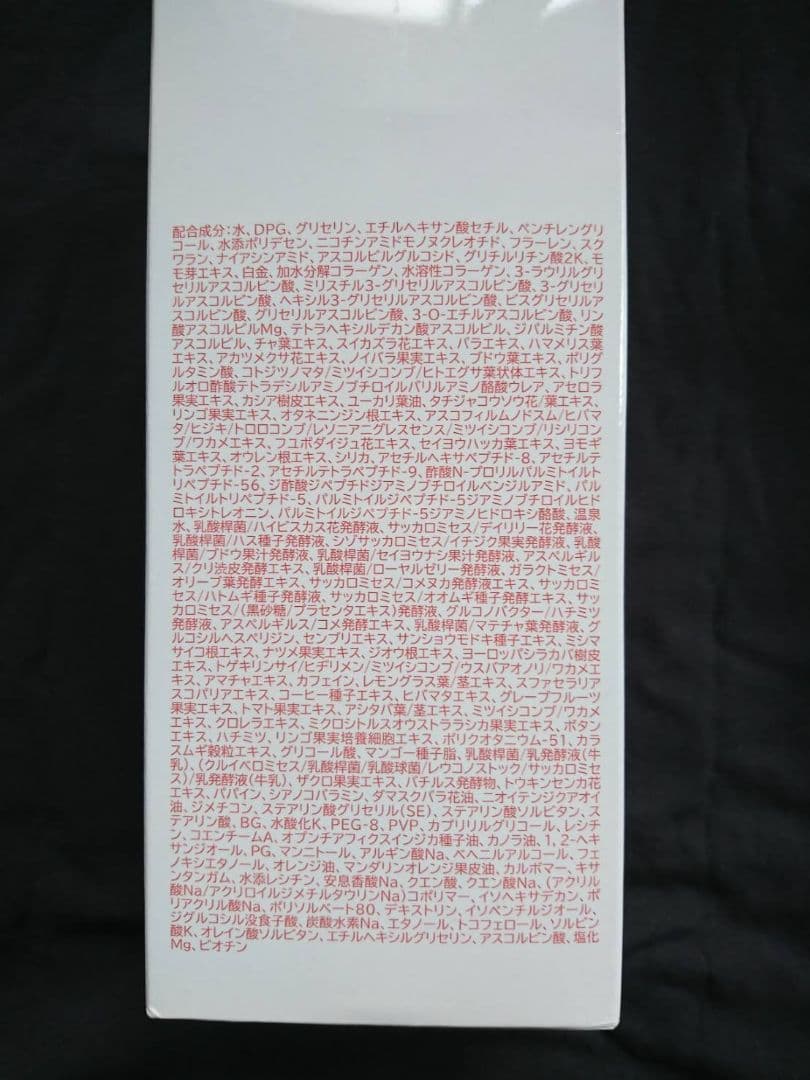 配合成分:水、DPG、グリセリン、エチルヘキサン酸セチル、ペンチレングリ
コール、水添ポリデセン、ニコチンアミドモノヌクレオチド、フラーレン、スク
ワラン、ナイアシンアミド、アスコルビルグルコシド、グリチルリチン酸2K、モ
モ芽エキス、白金、加水分解コラーゲン、水溶性コラーゲン、3-ラウリルグリ
セリルアスコルビン酸、ミリスチル3-グリセリルアスコルビン酸、3-グリセ
リルアスコルビン酸、ヘキシル3-グリセリルアスコルビン酸、ビスグリセリルア
スコルビン酸、グリセリルアスコルビン酸、3-O-エチルアスコルビン酸、リン
酸アスコルビルMg、テトラヘキシルデカン酸アスコルビル、ジパルミチン酸
アスコルビル、チャ葉エキス、スイカズラ花エキス、バラエキス、ハマメリス葉
エキス、アカツメクサ花エキス、ノイバラ果実エキス、ブドウ葉エキス、ポリグ
ルタミン酸、コトジツノマタ/ミツイシコンブ/ヒトエグサ葉状体エキス、トリフ
ルオロ酢酸テトラデシルアミノブチロイルバリルアミノ酪酸ウレア、アセロラ
果実エキス、カシア樹皮エキス、ユーカリ葉油、タチジャコウソウ花/葉エキス、
リンゴ果実エキス、オタネニンジン根エキス、アスコフィルムノドスム/ヒバマ
タ/ヒジキ/トロロコンブ/レソニアニグレスセンス/ミツイシコンブ/リシリコン
ブ/ワカメエキス、フユボダイジュ花エキス、セイヨウハッカ葉エキス、ヨモギ
葉エキス、オウレン根エキス、シリカ、アセチルヘキサペプチド-8、アセチルテ
トラペプチド-2、アセチルテトラペプチド-9、酢酸N-プロリルパルミトイルト
リペプチド-56、ジ酢酸ジペプチドジアミノブチロイルベンジルアミド、パル
ミトイルトリペプチド-5、パルミトイルジペプチド-5ジアミノブチロイルヒド
ロキシトレオニン、パルミトイルジペプチド-5ジアミノヒドロキシ酪酸、温泉
水、乳酸桿菌/ハイビスカス花発酵液、サッカロミセス/デイリリー花発酵液、
乳酸桿菌/ハス種子発酵液、シゾサッカロミセス/イチジク果実発酵液、乳酸
桿菌/ブドウ果汁発酵液、乳酸桿菌/セイヨウナシ果汁発酵液、アスペルギル
ス/クリ渋皮発酵エキス、乳酸桿菌/ローヤルゼリー発酵液、ガラクトミセス/
オリーブ葉発酵エキス、サッカロミセス/コメヌカ発酵液エキス、サッカロミ
セス/ハトムギ種子発酵液、サッカロミセス/オオムギ種子発酵エキス、サッ
カロミセス/(黒砂糖/プラセンタエキス)発酵液、グルコノバクター/ハチミツ
発酵液、アスペルギルス/コメ発酵エキス、乳酸桿菌/マテチャ葉発酵液、グ
ルコシルヘスペリジン、センブリエキス、サンショウモドキ種子エキス、ミシマ
サイコ根エキス、ナツメ果実エキス、ジオウ根エキス、ヨーロッパシラカバ樹皮
エキス、トゲキリンサイ/ヒヂリメン/ミツイシコンブ/ウスバアオノリ/ワカメエ
キス、アマチャエキス、カフェイン、レモングラス葉/茎エキス、スファセラリア
スコパリアエキス、コーヒー種子エキス、ヒバマタエキス、グレープフルーツ
果実エキス、トマト果実エキス、アシタバ葉/茎エキス、ミツイシコンブ/ワカメエ
キス、クロレラエキス、ミクロシトルスオウストララシカ果実エキス、ボタン
エキス、ハチミツ、リンゴ果実培養細胞エキス、ポリクオタニウム-51、カラ
スムギ穀粒エキス、グリコール酸、マンゴー種子脂、乳酸桿菌/乳発酵液(牛
乳)、(クルイベロミセス/乳酸桿菌/乳酸球菌/レウコノストック/サッカロミセ
ス)/乳発酵液(牛乳)、ザクロ果実エキス、バチルス発酵物、トウキンセンカ花
エキス、パパイン、シアノコバラミン、ダマスクバラ花油、ニオイテンジクアオイ
油、ジメチコン、ステアリン酸グリセリル(SE)、ステアリン酸ソルビタン、ス
テアリン酸、BG、水酸化K、PEG-8、PVP、カプリリルグリコール、レシチ
ン、コエンチームA、オプンチアフィクスインジカ種子油、カノラ油、1,2-ヘキ
サンジオール、PG、マンニトール、アルギン酸Na、ベヘニルアルコール、フェ
ノキシエタノール、オレンジ油、マンダリンオレンジ果皮油、カルボマー、キサ
ンタンガム、水添レシチン、安息香酸Na、クエン酸、クエン酸Na、(アクリル
酸Na/アクリロイルジメチルタウリンNa)コポリマー、イソヘキサデカン、ポ
リアクリル酸Na、ポリソルベート80、デキストリン、イソペンチルジオール、
ジグルコシル没食子酸、炭酸水素Na、エタノール、トコフェロール、ソルビン
酸K、オレイン酸ソルビタン、エチルヘキシルグリセリン、アスコルビン酸、塩化
Mg、ビオチン